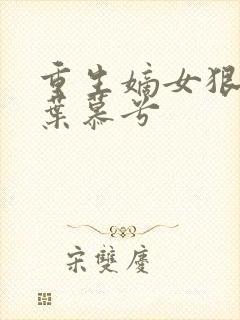 重生嫡女狠
葉慕兮
宋雙慶